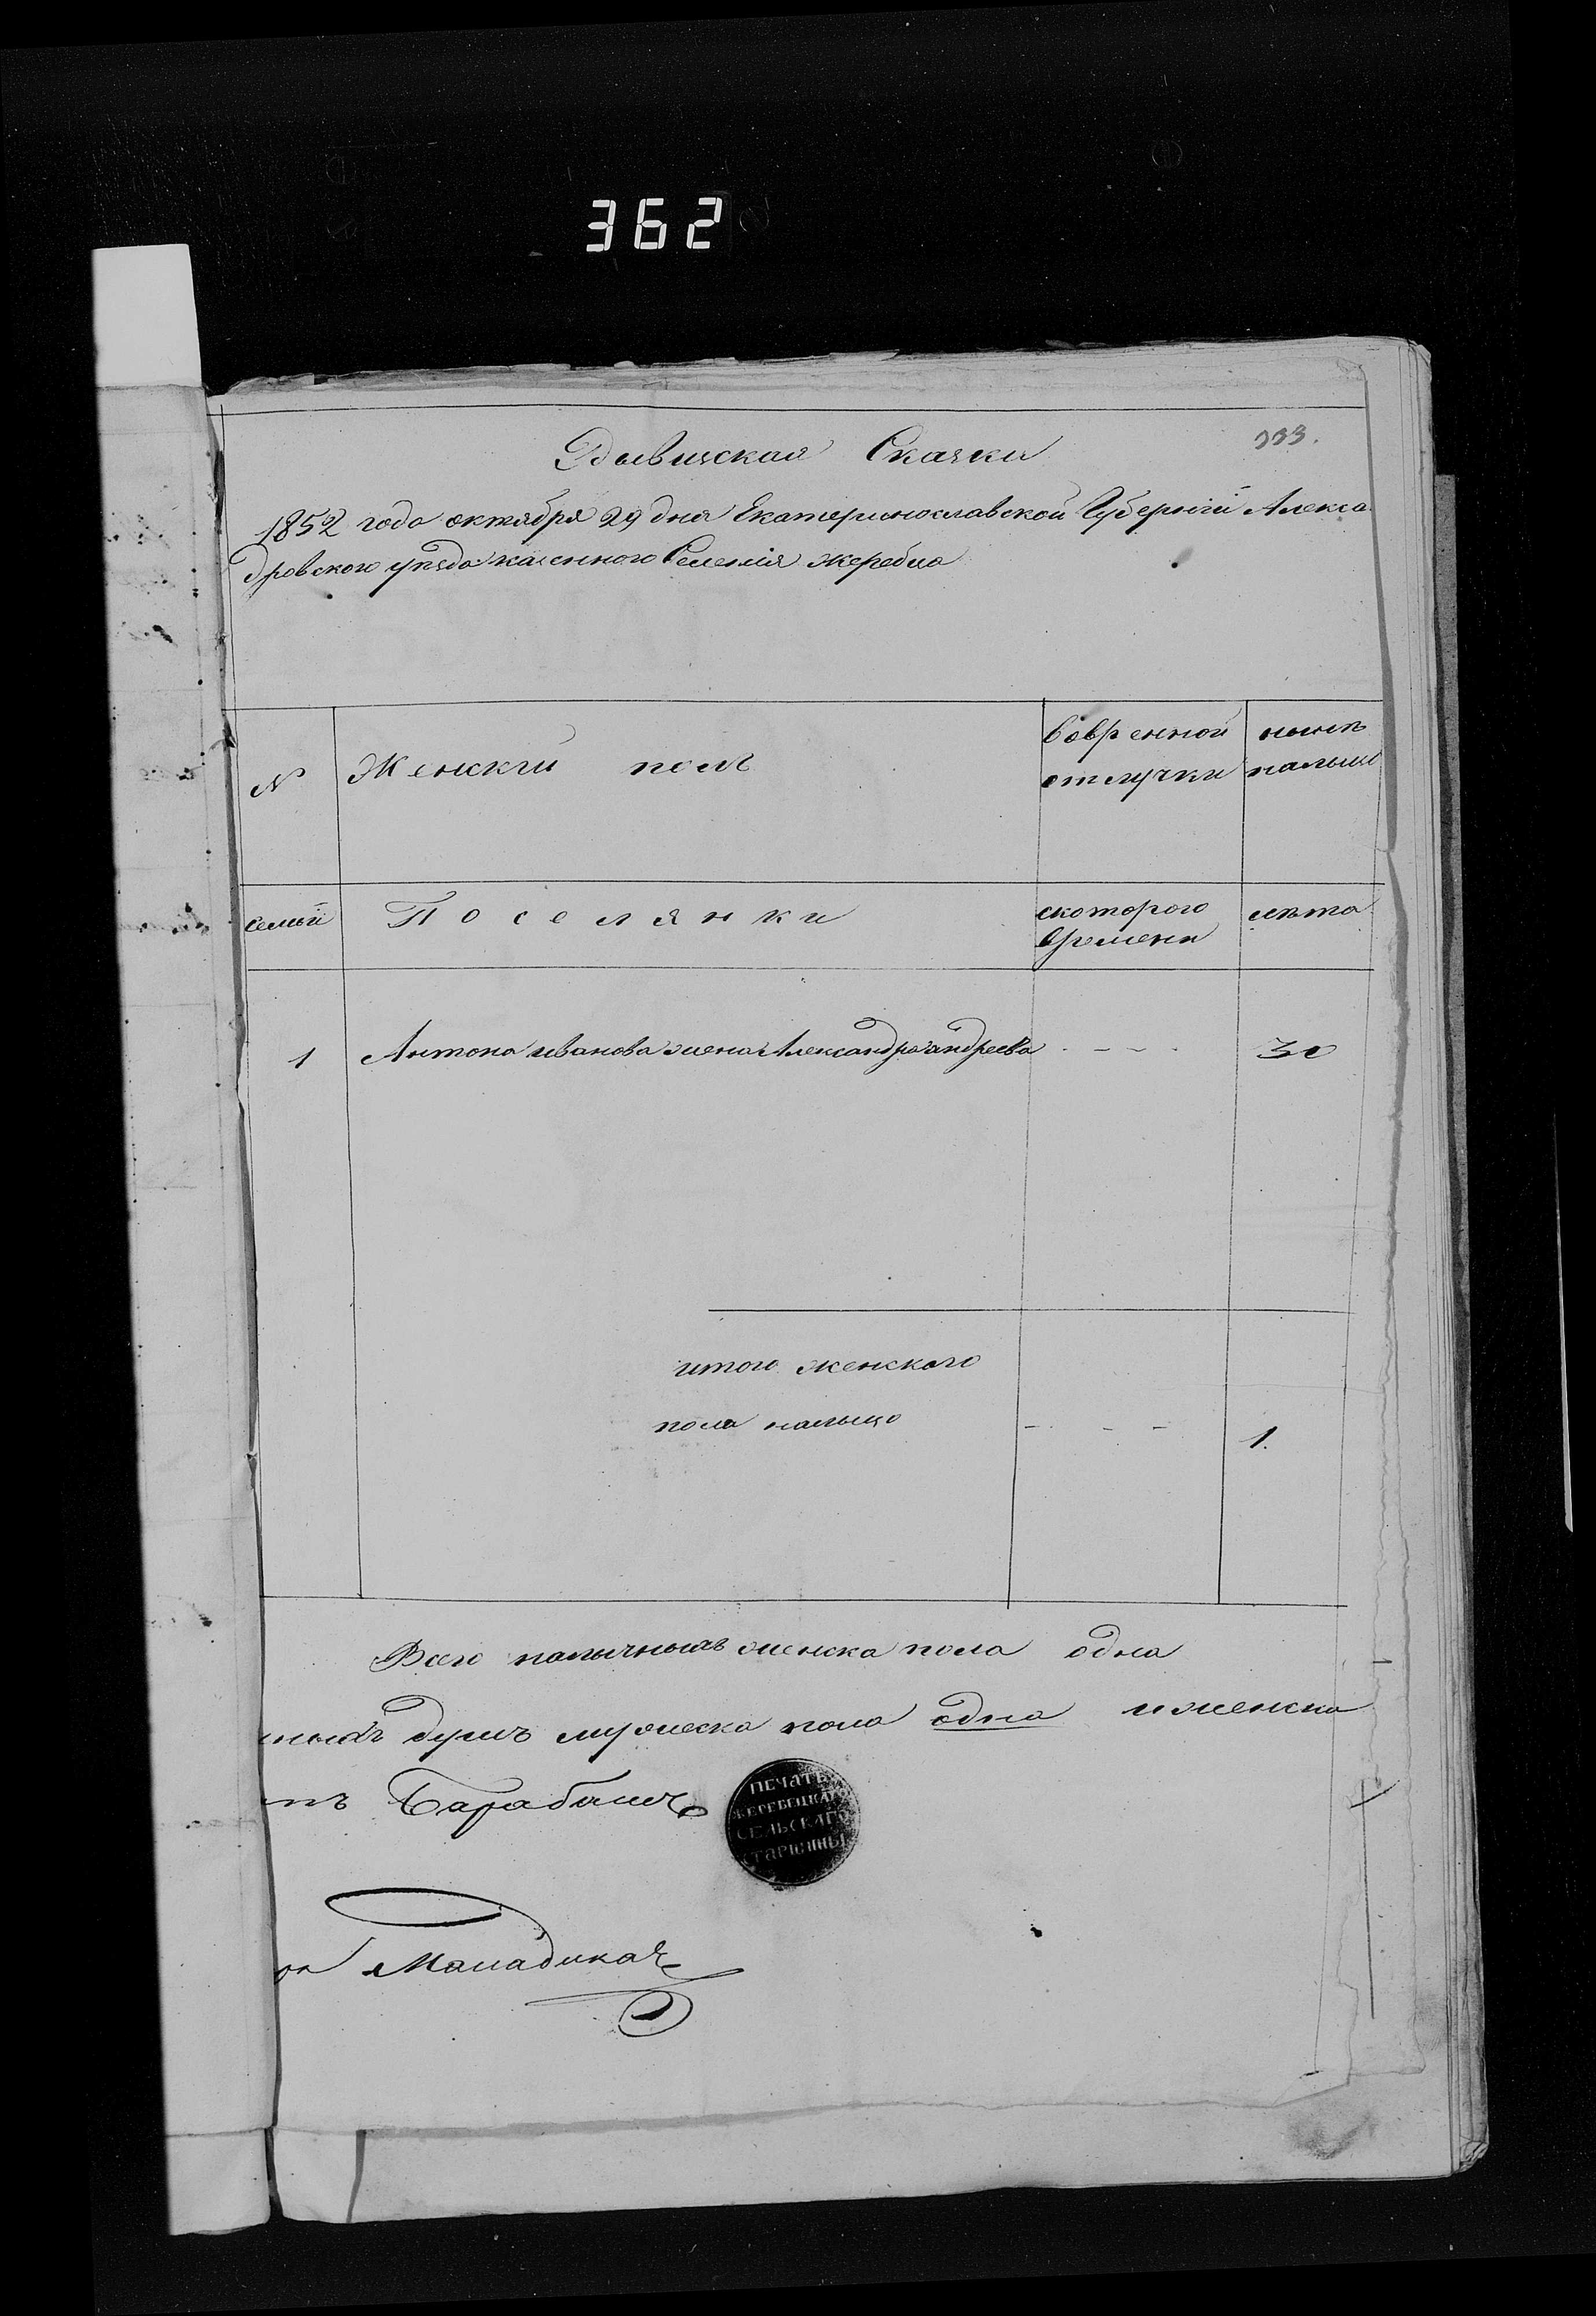 362
333.
Рывизская Сказки
1852 года октября 29 дня Екатеринославской Губерніи Алекса
дровского уѣзда казенного Селенія жеребца
N
Женскій полъ
вовременной отлучки
нынѣ налицо
семьи
Поселянки
скоторого времени
лѣта
1 Антона иванова жена Александра андреева - - - 30
итого женского
пола налыцо - - - 1.
Всего налычныхъ женска пола одна
ныхъ душъ мужеска пола одна иженска
тъ Барабашъ
ПЕЧАТЬ
ЖЕРЕБЕЦКАГО
СЕЛЬСКАГО
СТАРШИНЫ